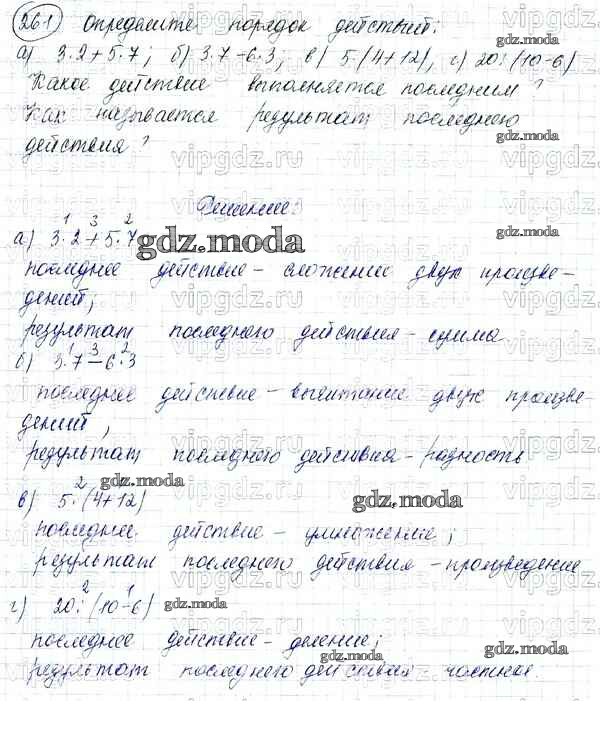 261 Определите порядок действий:
а) 3·2+5·7; б) 3·7-6·3; в) 5(4+12), г) 20:(10-6)
Какое действие выполняется последним?
Как называется результат последнего
действия?
Решение:
1 3 2
а) 3·2+5·7
последнее действие - сложение двух произве-
дений;
результат последнего действия - сумма
1 3 2
б) 3·7-6·3
последнее действие - вычитание двух произве-
дений,
результат последнего действия - разность
2
в) 5·(4+12)
последнее действие - умножение;
результат последнего действия - произведение
2 1
г) 20:(10-6)
последнее действие - деление;
результат последнего действия частное.
gdz.moda
vipgdz.ru